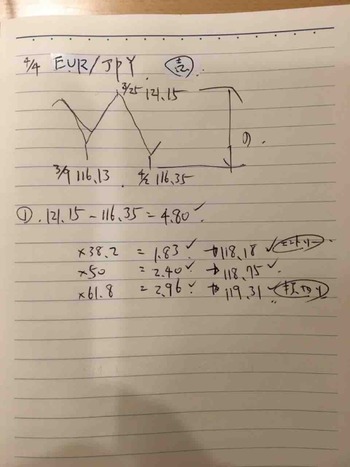 4/4 EUR/JPY. 売
3/25 121.15
①.
3/9 116.13. 4/2 116.35
①. 121.15 - 116.35 = 4.80 ✓
×38.2 = 1.83 ✓ → 118.18 ✓ エントリー
×50 = 2.40 ✓ → 118.75 ✓
×61.8 = 2.96 ✓ → 119.31 ✓